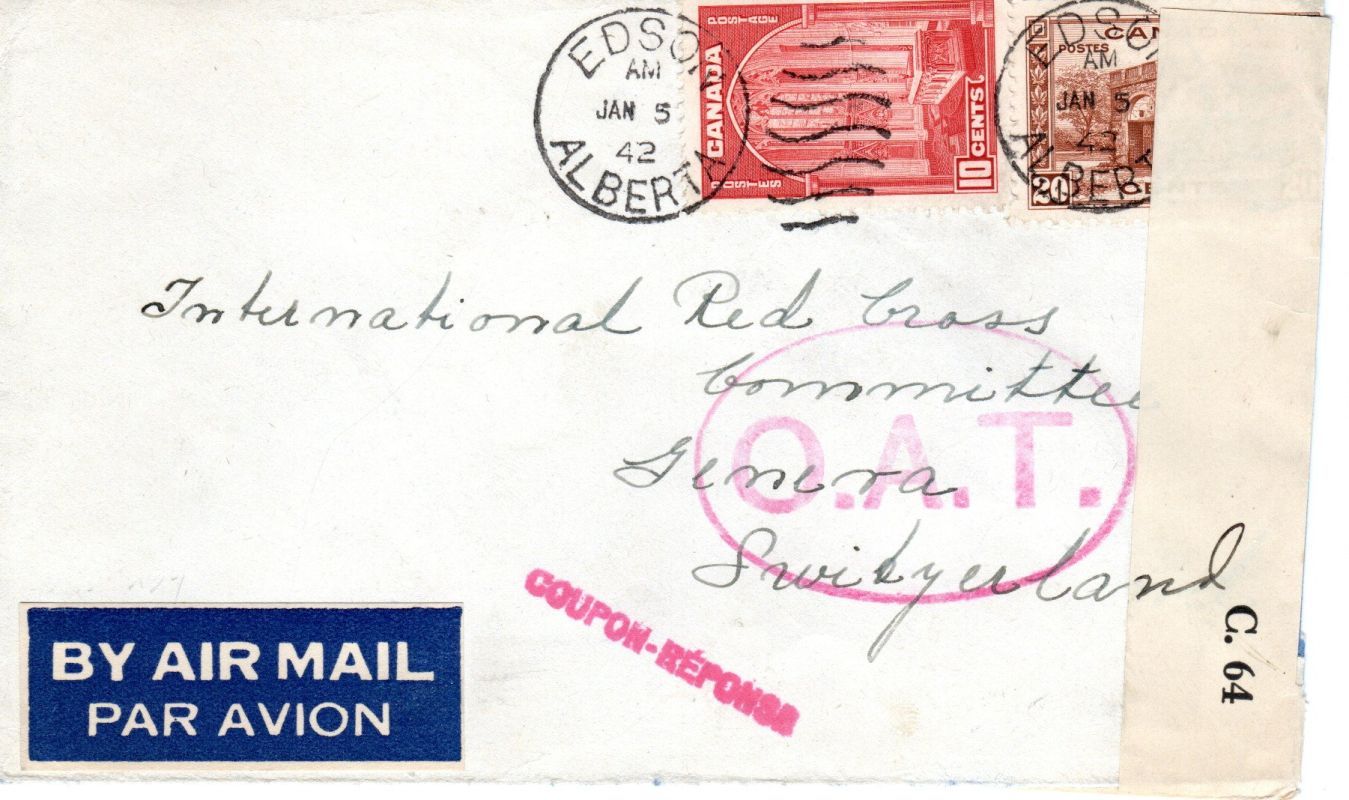 EDSON
AM
JAN 5
42
ALBERTA
POSTAGE
CANADA
POSTES
10 CENTS
EDSON
AM
JAN 5
42
ALBERT
CAN
POSTES
20
International Red Cross
Committee
Geneva
Switzerland
O.A.T.
COUPON-RÉPONSE
BY AIR MAIL
PAR AVION
C. 64